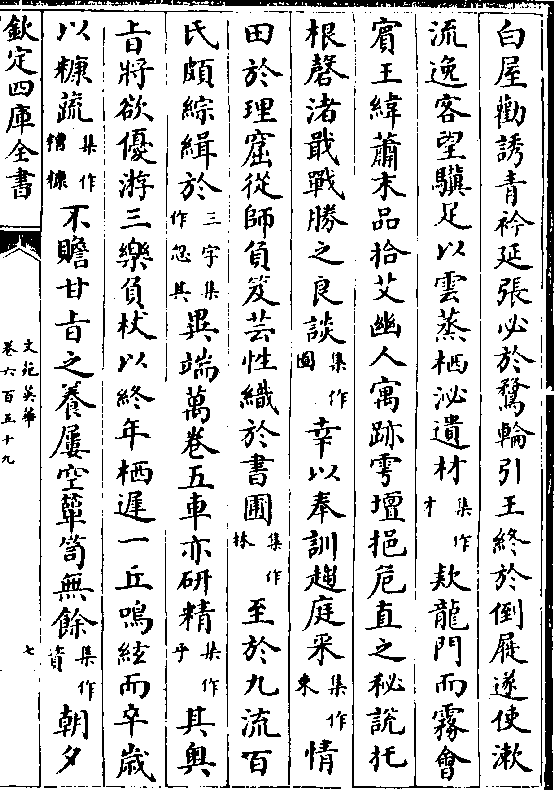 白屋勸誘青衿延張必於鶩輪引王終於倒屣遂使漱
流逸客望驥足以雲蒸栖泌遺材集作才欵龍門而霧會
賓王緯蕭末品拾艾幽人寓跡雩壇挹危直之秘說托
根磬渚戢戰勝之良談集作圖幸以奉訓趨庭采集作束情
田於理窟從師負笈芸性織於書圃集作林至於九流百
氏頗綜緝於三字集作忽其異端萬卷五車亦研精集作乎其奥
旨將欲優游三樂負杖以終年栖遲一丘鳴絃而卒歲
以糠䟽集作糟糠不贍甘旨之養屢空簞笥無餘集作資朝夕
欽定四庫全書
文苑英華
卷六百五十九
七